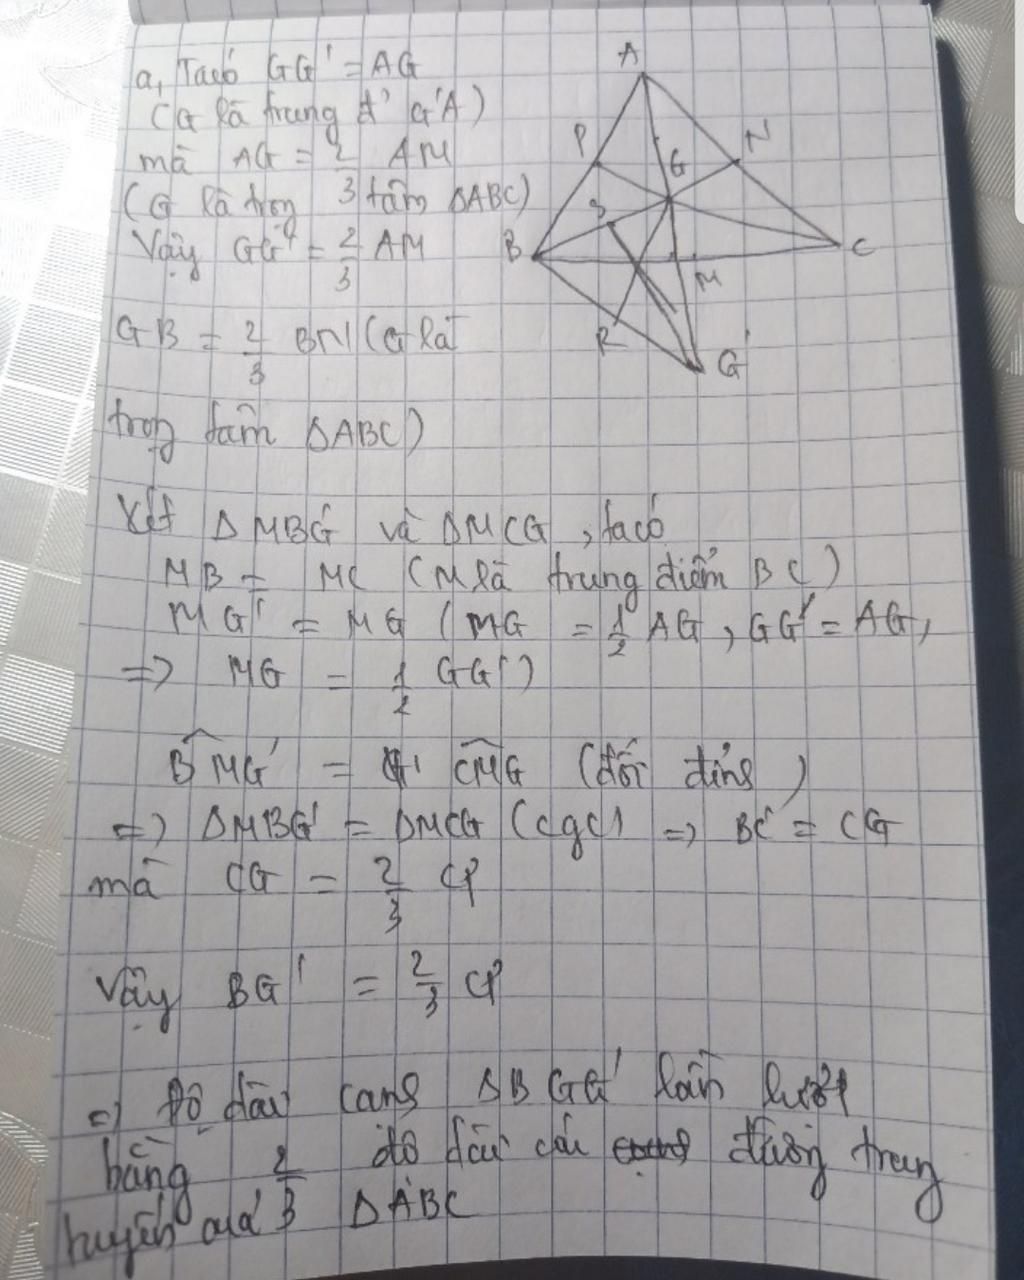 a, Ta có GG' = AG
(G là trung đ' G'A)
mà AG = 2/3 AM
(G là trọng tâm ΔABC)
Vậy GG' = 2/3 AM
GB = 2/3 BN (G là
trọng tâm ΔABC)
A
P
N
G
S
B
C
M
R
G'
Xét ΔMBG' và ΔMCG, ta có
MB = MC (M là trung điểm BC)
MG' = MG (MG = 1/2 AG, GG' = AG,
=> MG = 1/2 GG')
BMG' = CMG (đối đỉnh)
=> ΔMBG' = ΔMCG (cgc) => BG' = CG
mà CG = 2/3 CP
Vậy BG' = 2/3 CP
=> Độ dài cạng ΔBGG' lần lượt
bằng 2/3 độ dài các đường trung
tuyến của ΔABC